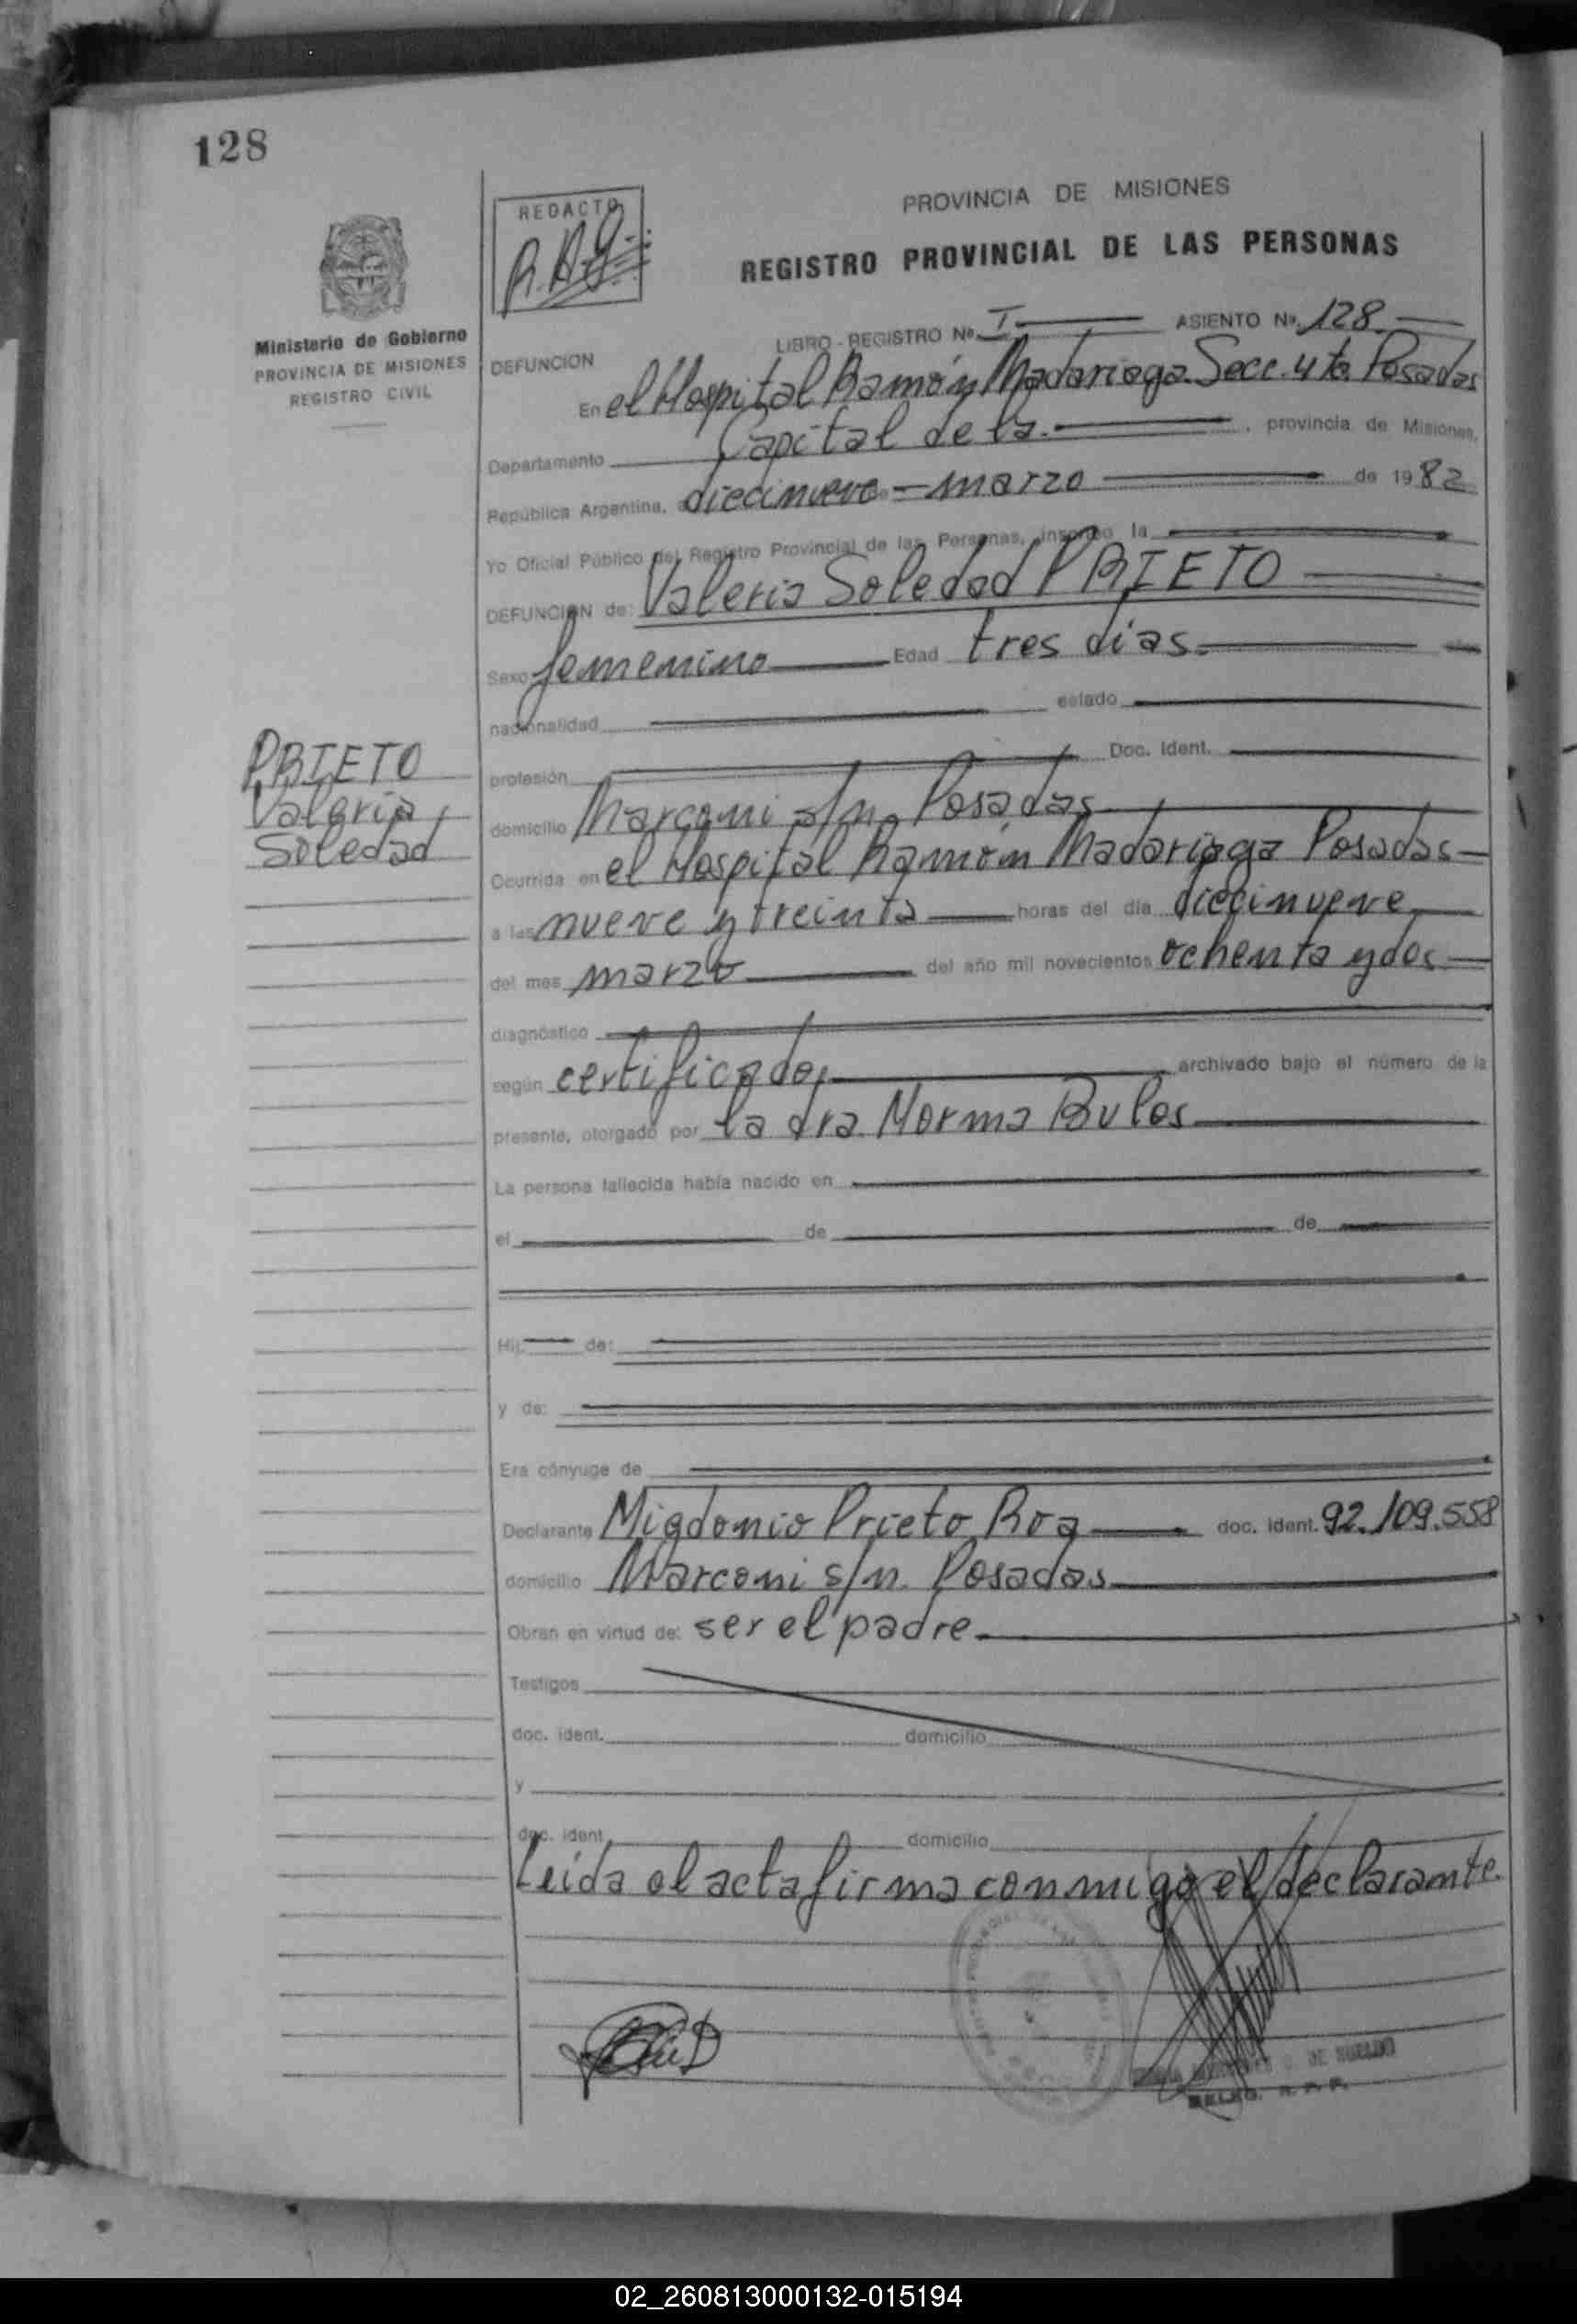 128
REDACTO
R.A.G.
PROVINCIA DE MISIONES
REGISTRO PROVINCIAL DE LAS PERSONAS
Ministerio de Gobierno
PROVINCIA DE MISIONES
REGISTRO CIVIL
LIBRO - REGISTRO Nº I ASIENTO Nº 128
DEFUNCION
En el Hospital Ramón Madariaga. Secc. 4ta. Posadas
Departamento Capital de la. , provincia de Misiones,
República Argentina, a diecinueve - marzo de 1982
Yo Oficial Público del Registro Provincial de las Personas, inscribo la
DEFUNCION de: Valeria Soledad PRIETO
Sexo femenino Edad tres días.
nacionalidad estado
profesión Doc. Ident.
PRIETO
Valeria
Soledad
domicilio Marconi s/n. Posadas
Ocurrida en el Hospital Ramón Madariaga Posadas
a las nueve y treinta horas del día diecinueve
del mes marzo del año mil novecientos ochenta y dos
diagnóstico
según certificado, archivado bajo el número de la
presente, otorgado por la dra. Norma Bulos
La persona fallecida había nacido en
el de de
Hij de:
y de:
Era cónyuge de
Declarante Migdonio Prieto Roa doc. ident. 92.109.558
domicilio Marconi s/n. Posadas
Obran en virtud de: ser el padre.
Testigos
doc. ident. domicilio
y
doc. ident. domicilio
Leída el acta firma conmigo el declarante.
DE SUELDO
DELEG. R. P. P.
02_260813000132-015194